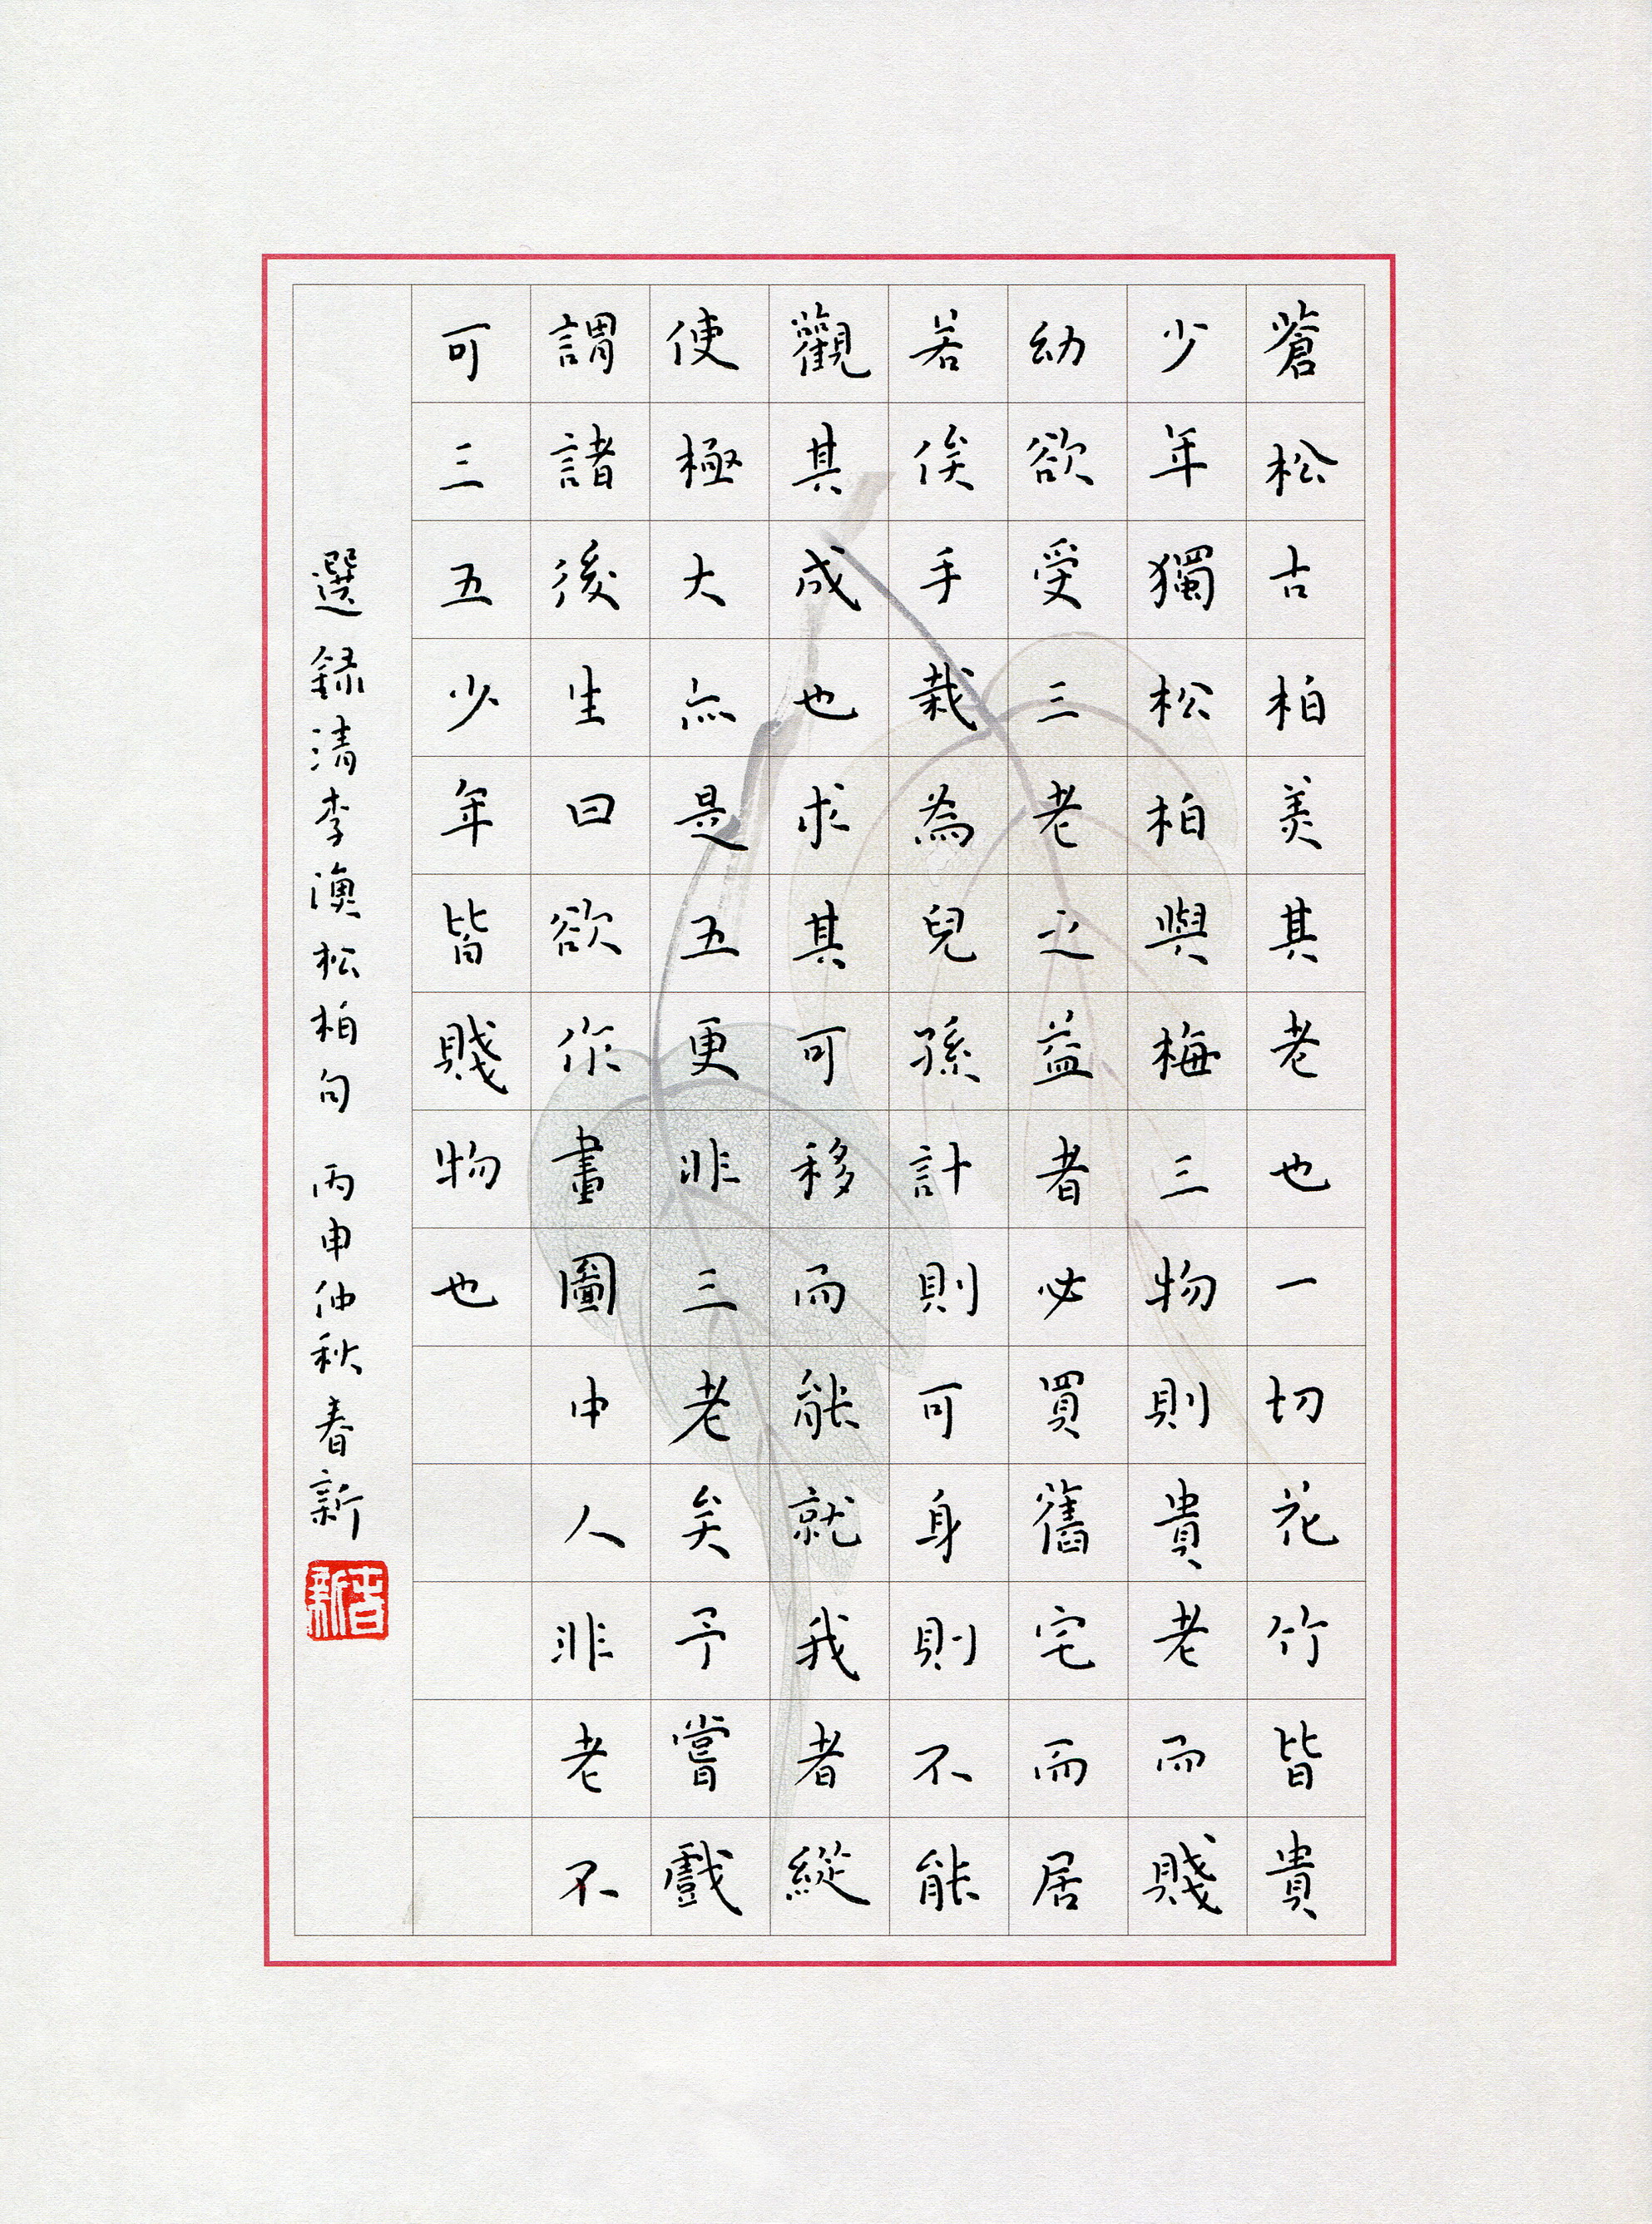 蒼松古柏美其老也一切花竹皆貴
少年獨松柏與梅三物則貴老而賤
幼欲受三老之益者必買舊宅而居
若俟手栽為兒孫計則可身則不能
觀其成也求其可移而能就我者縱
使極大亦是五更非三老矣予嘗戲
謂諸後生曰欲作畫圖中人非老不
可三五少年皆賤物也
選錄清李漁松柏句 丙申仲秋春新
春新